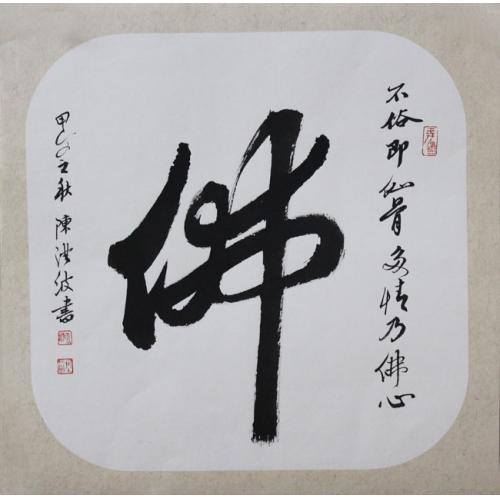 不俗即仙骨多情乃佛心
佛
甲午之秋 陳洪波書